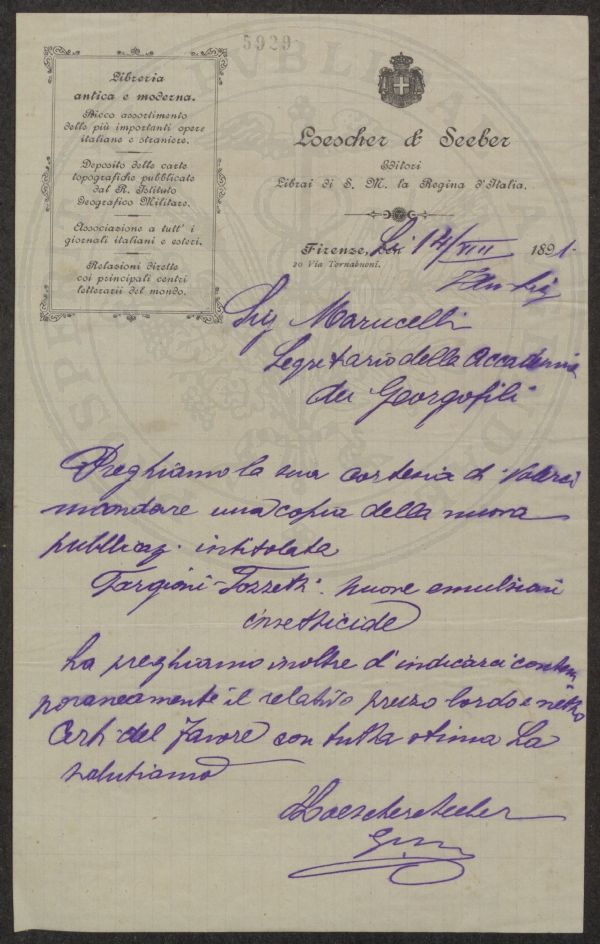 5929
Libreria
antica e moderna.
Ricco assortimento
delle più importanti opere
italiane e straniere.
Deposito delle carte
topografiche pubblicate
dal R. Istituto
Geografico Militare.
Associazione a tutt' i
giornali italiani e esteri.
Relazioni dirette
coi principali centri
letterarii del mondo.
Loescher & Seeber
Editori
Librai di S. M. la Regina d'Italia.
Firenze, Li 14/VIII 1891.
20 Via Tornabuoni.
Sig Marucelli
Segretario della Accademia
dei Georgofili
Preghiamo la sua cortesia di volerci
mandare una copia della nuova
pubblicaz. intitolata
Targioni-Tozzetti. nuove emulsioni
insetticide
La preghiamo inoltre d'indicarci contem
poraneamente il relativo prezzo lordo e netto
Certi del favore con tutta stima La
salutiamo
Loescher & Seeber